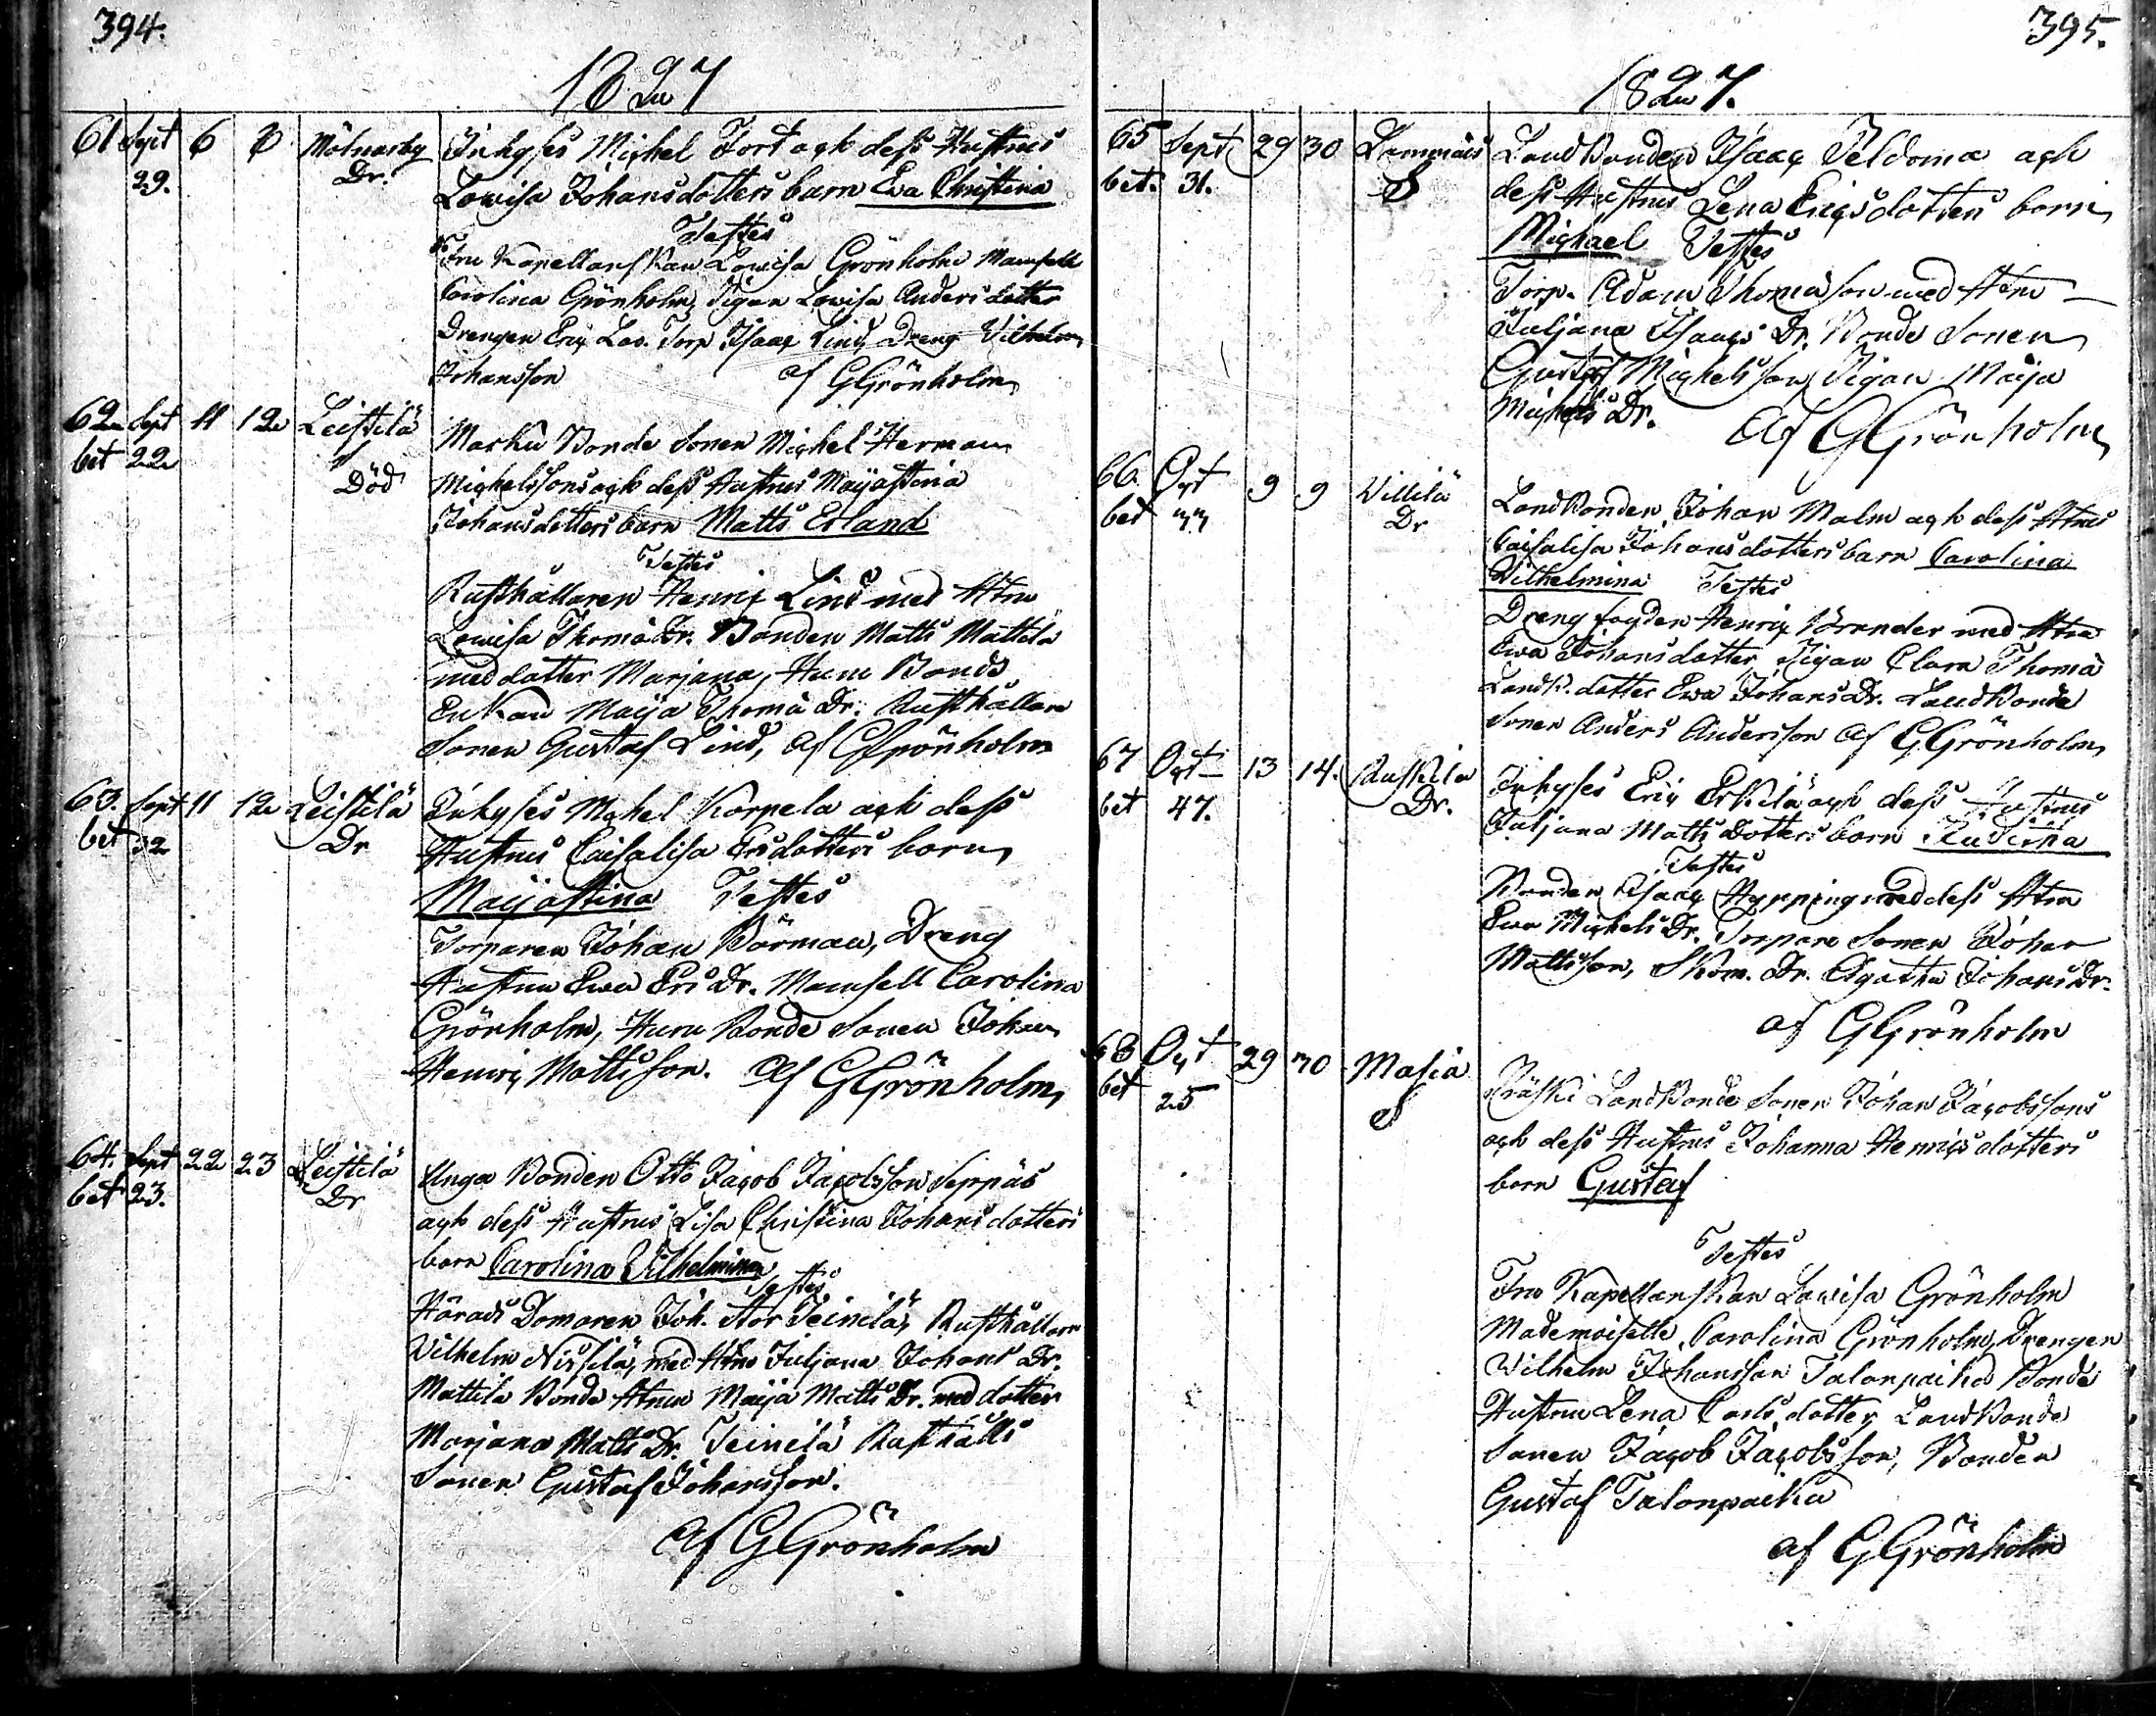 394.
1827
61 Sept 6 8 Mölnarby Inhyses Michel Fort och dess Hustrus
29. Dr. Lowisa Johansdotters barn Ewa Christina
Testes
Fru Kapellanskan Lowisa Grönholm Mamsell
Carolina Grönholm, Pigan Lowisa Anders dotter
Drengen Eric Torp Isaac Lind Dreng Vilhelm
Johansson af G Grönholm
62 Sept 11 12 Leistilä Markü Bonde Sonen Michel Herman
bet 22 S Död Michelssons och dess Hustrus Maijastina
Johansdotters barn Matts Erland
Testes
Rusthållaren Henric Lind med Hstru
Lowisa Thomä Dr. Bonden Matts Mattila
med dotter Marjana, Huru Bonde
Enkan Maija Thomä Dr. Rusthållare
Sonen Gustaf Lind, af G Grönholm
63. Sept 11 12 Leistilä Inhyses Michel Korpela och dess
bet 32 Dr Hustrus Caisalisa Ersdotters barn
Maijastina Testes
Torparen Johan Börman, Dreng
Hustrun Ewa Ers Dr. Mamsell Carolina
Grönholm, Huru Bonde Sonen Johan
Henric Mattsson. af G Grönholm
64. Sept 22 23 Leistilä Unga Bonden Otto Jacob Jacobsson Seppäs
bet 23. Dr och dess Hustrus Lisa Christina Johansdotters
barn Carolina Vilhelmina
Testes
Härads Domaren Joh. Stor Teinilä, Rusthållare
Vilhelm Nissilä, med Hstru Juljana Johans Dr.
Mattila Bonde Hstrun Maija Matts Dr. med dotter
Marjana Matts Dr. Teinilä Rusthålls
Sonen Gustaf Johansson.
af G Grönholm
395.
1827.
65 Sept 29 30 Lammais Landbonden Isaac Peldoma och
bet. 31. S dess Hustrus Lena Ericsdotters barn
Michael Testes
Torp. Adam Thomasson med Hstru
Juljana Isaacs Dr. Bonde Sonen
Gustaf Michelsson, Pigan Maija
Michels Dr. af G Grönholm
66. Oct 9 9 Villilä Landbonden Johan Malm och dess Hstrus
bet 33 Dr Caisalisa Johansdotters barn Carolina
Wilhelmina Testes
Dreng fogden Henric Brander med Hstru
Ewa Johansdotter, Pigan Clara Thomä
Landb. dotter Ewa Johans Dr. Landbonde
Sonen Anders Andersson af G Grönholm
67 Oct 13 14. Anskila Inhyses Eric Erkilä och dess Hustrus
bet 47. Dr. Juljana Matts Dotters barn Fredrika
Testes
Bonden Isaac Hypping med dess Hstru
Ewa Michels Dr. Torpare Sonen Johan
Mattsson, Skom. Dr. Agatha Johans Dr.
af G Grönholm
68 Oct 29 30 Masia Räski Landbonde Sonen Johan Jacobssons
bet 25 S och dess Hustrus Johanna Henricsdotters
barn Gustaf
Testes
Fru Kapellanskan Lowisa Grönholm
Mademoiselle Carolina Grönholm, Drengen
Wilhelm Johansson Talonpoika Bonde
Hustrun Lena Carlsdotter, Landbonde
Sonen Jacob Jacobsson, Bonden
Gustaf Talonpoika
af G Grönholm